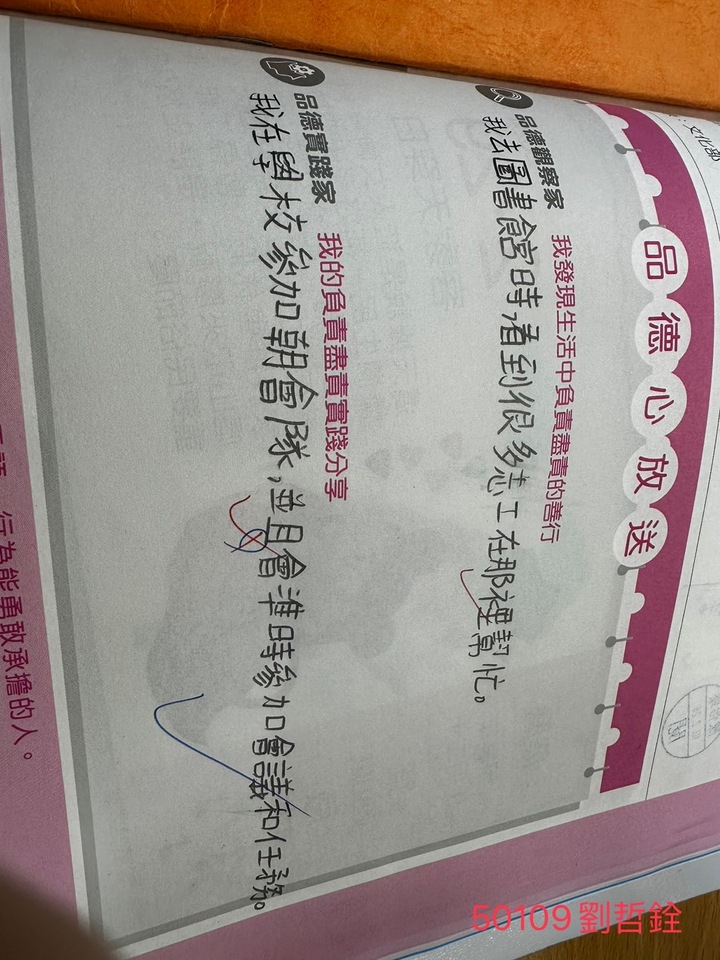 品德心放送
品德觀察家 我發現生活中負責盡責的善行
我去圖書館時,看到很多志工在那裡幫忙。
品德實踐家 我的負責盡責實踐分享
我在學校參加朝會隊,並且會準時參加會議和任務。
行為能勇敢承擔的人。
50109劉哲銓